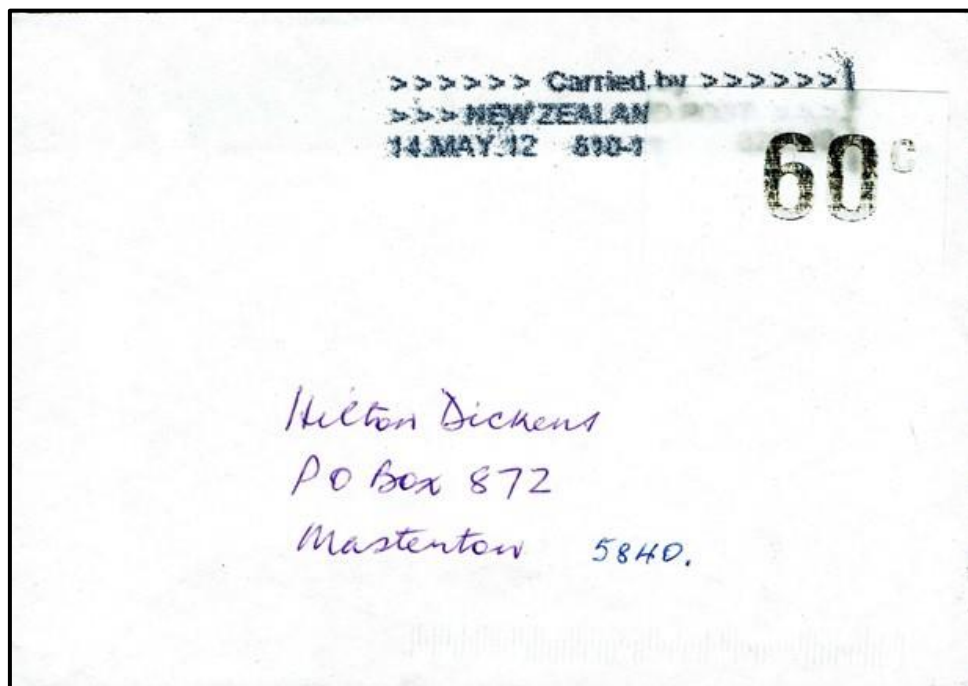 >>>>>> Carried by >>>>>>
>>> NEW ZEALAND POST
14.MAY.12
60c
Hilton Dickens
PO Box 872
Masterton 5840.